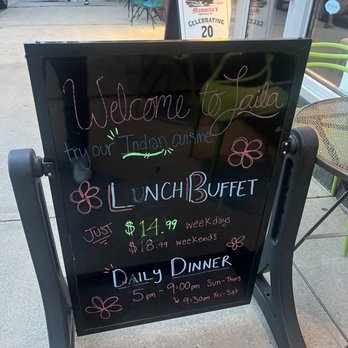 CELEBRATING
20
Welcome to Jaila
try our Indian cuisine
LUNCH BUFFET
JUST $14.99 weekdays
$18.99 weekends
DAILY DINNER
5pm - 9:00pm Sun-Thurs
↳ 9:30pm Fri-Sat